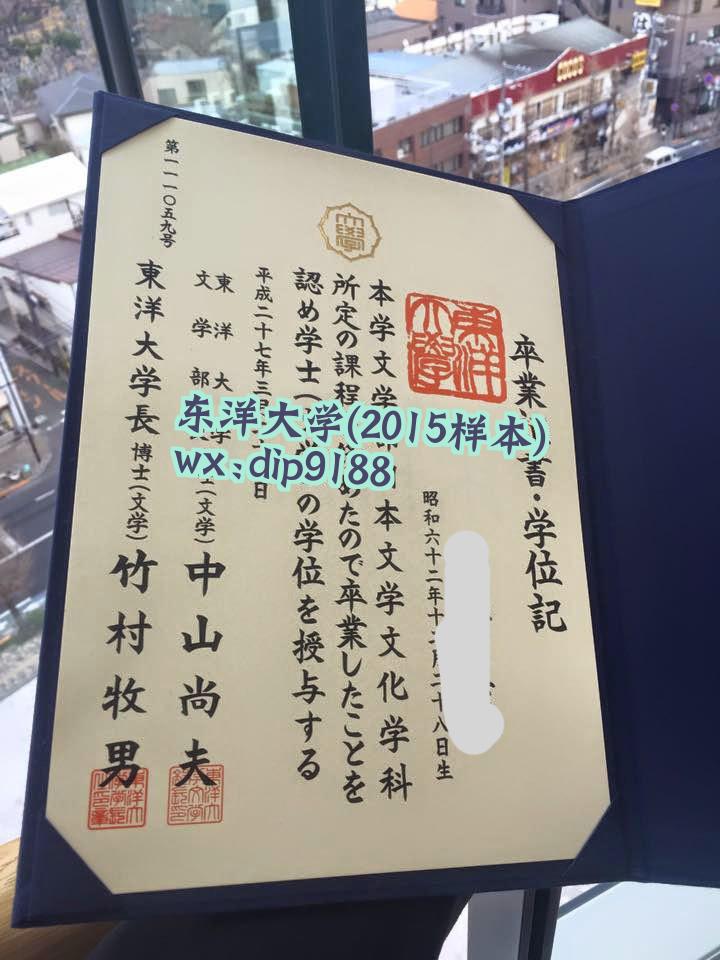 卒業証書・学位記
東洋大學
昭和六十二年十二月二十八日生
大學
本学文学部日本文学文化学科
所定の課程を修めたので卒業したことを
認め学士(文学)の学位を授与する
平成二十七年三月 日
東洋大学
文学部長 博士(文学) 中山尚夫
東洋大学長 博士(文学) 竹村牧男
第一一一〇五九号
东洋大学(2015样本)
wx:dip9188
COCO'S